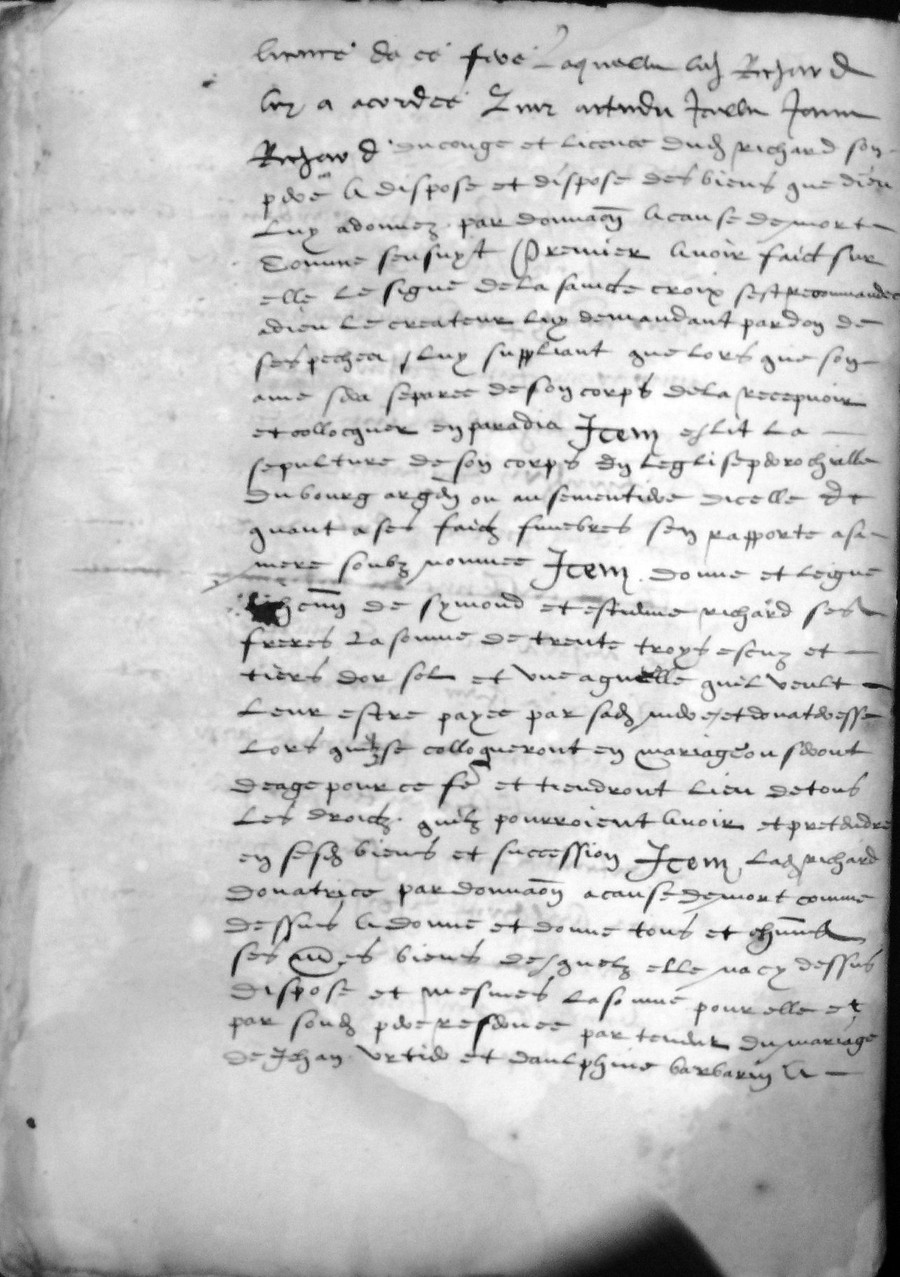 licence de ce fere laquelle led Richard
luy a acordee Pour actendu Icelle Jeanne
Richard du conge et licence dud richard son
pere a dispose et dispose des biens que dieu
luy a donnez par donnaon a cause de mort
Comme sensuyt Premier avoir faict sur
elle le signe de la saincte croix sest recommandee
a dieu le createur luy demandant pardon de
ses pechez luy suppliant que lors que son
ame sera separee de son corps de la recepvoir
et collocquer en paradis Item eslit la
sepulture de son corps en leglise perrochielle
du bourg argen ou au sementiere dicelle Et
quant a ses faictz funebres sen rapporte a sa
mere soubz nommee Item donne et legue
de symond et estienne richard ses
freres la somme de trente troys escuz et
tiers dor sol et une aguelle quil veult
leur estre payee par sad mere et donateresse
lors quilz se colloqueront en mariage ou seront
deage pour ce fe et tiendront lieu de tous
les droictz quilz pourroient avoir et pretendre
en sesd biens et succession Item lad richard
donatrice par donnaon a cause de mort comme
dessus a donne et donne tous et chuns
ses biens desquelz elle na cy dessus
dispose et mesmes la somme pour elle et
par sond pere reservee par teneur du mariage
de Jehan et daulphine barbarin a